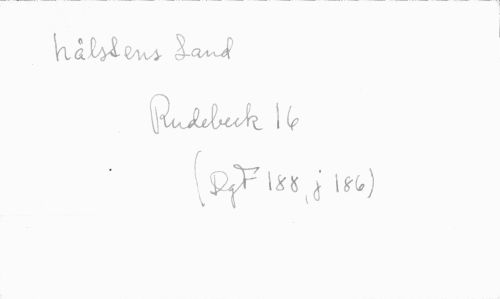 hålstens Land
Rudebeck 16
(DgF 188, j 186)